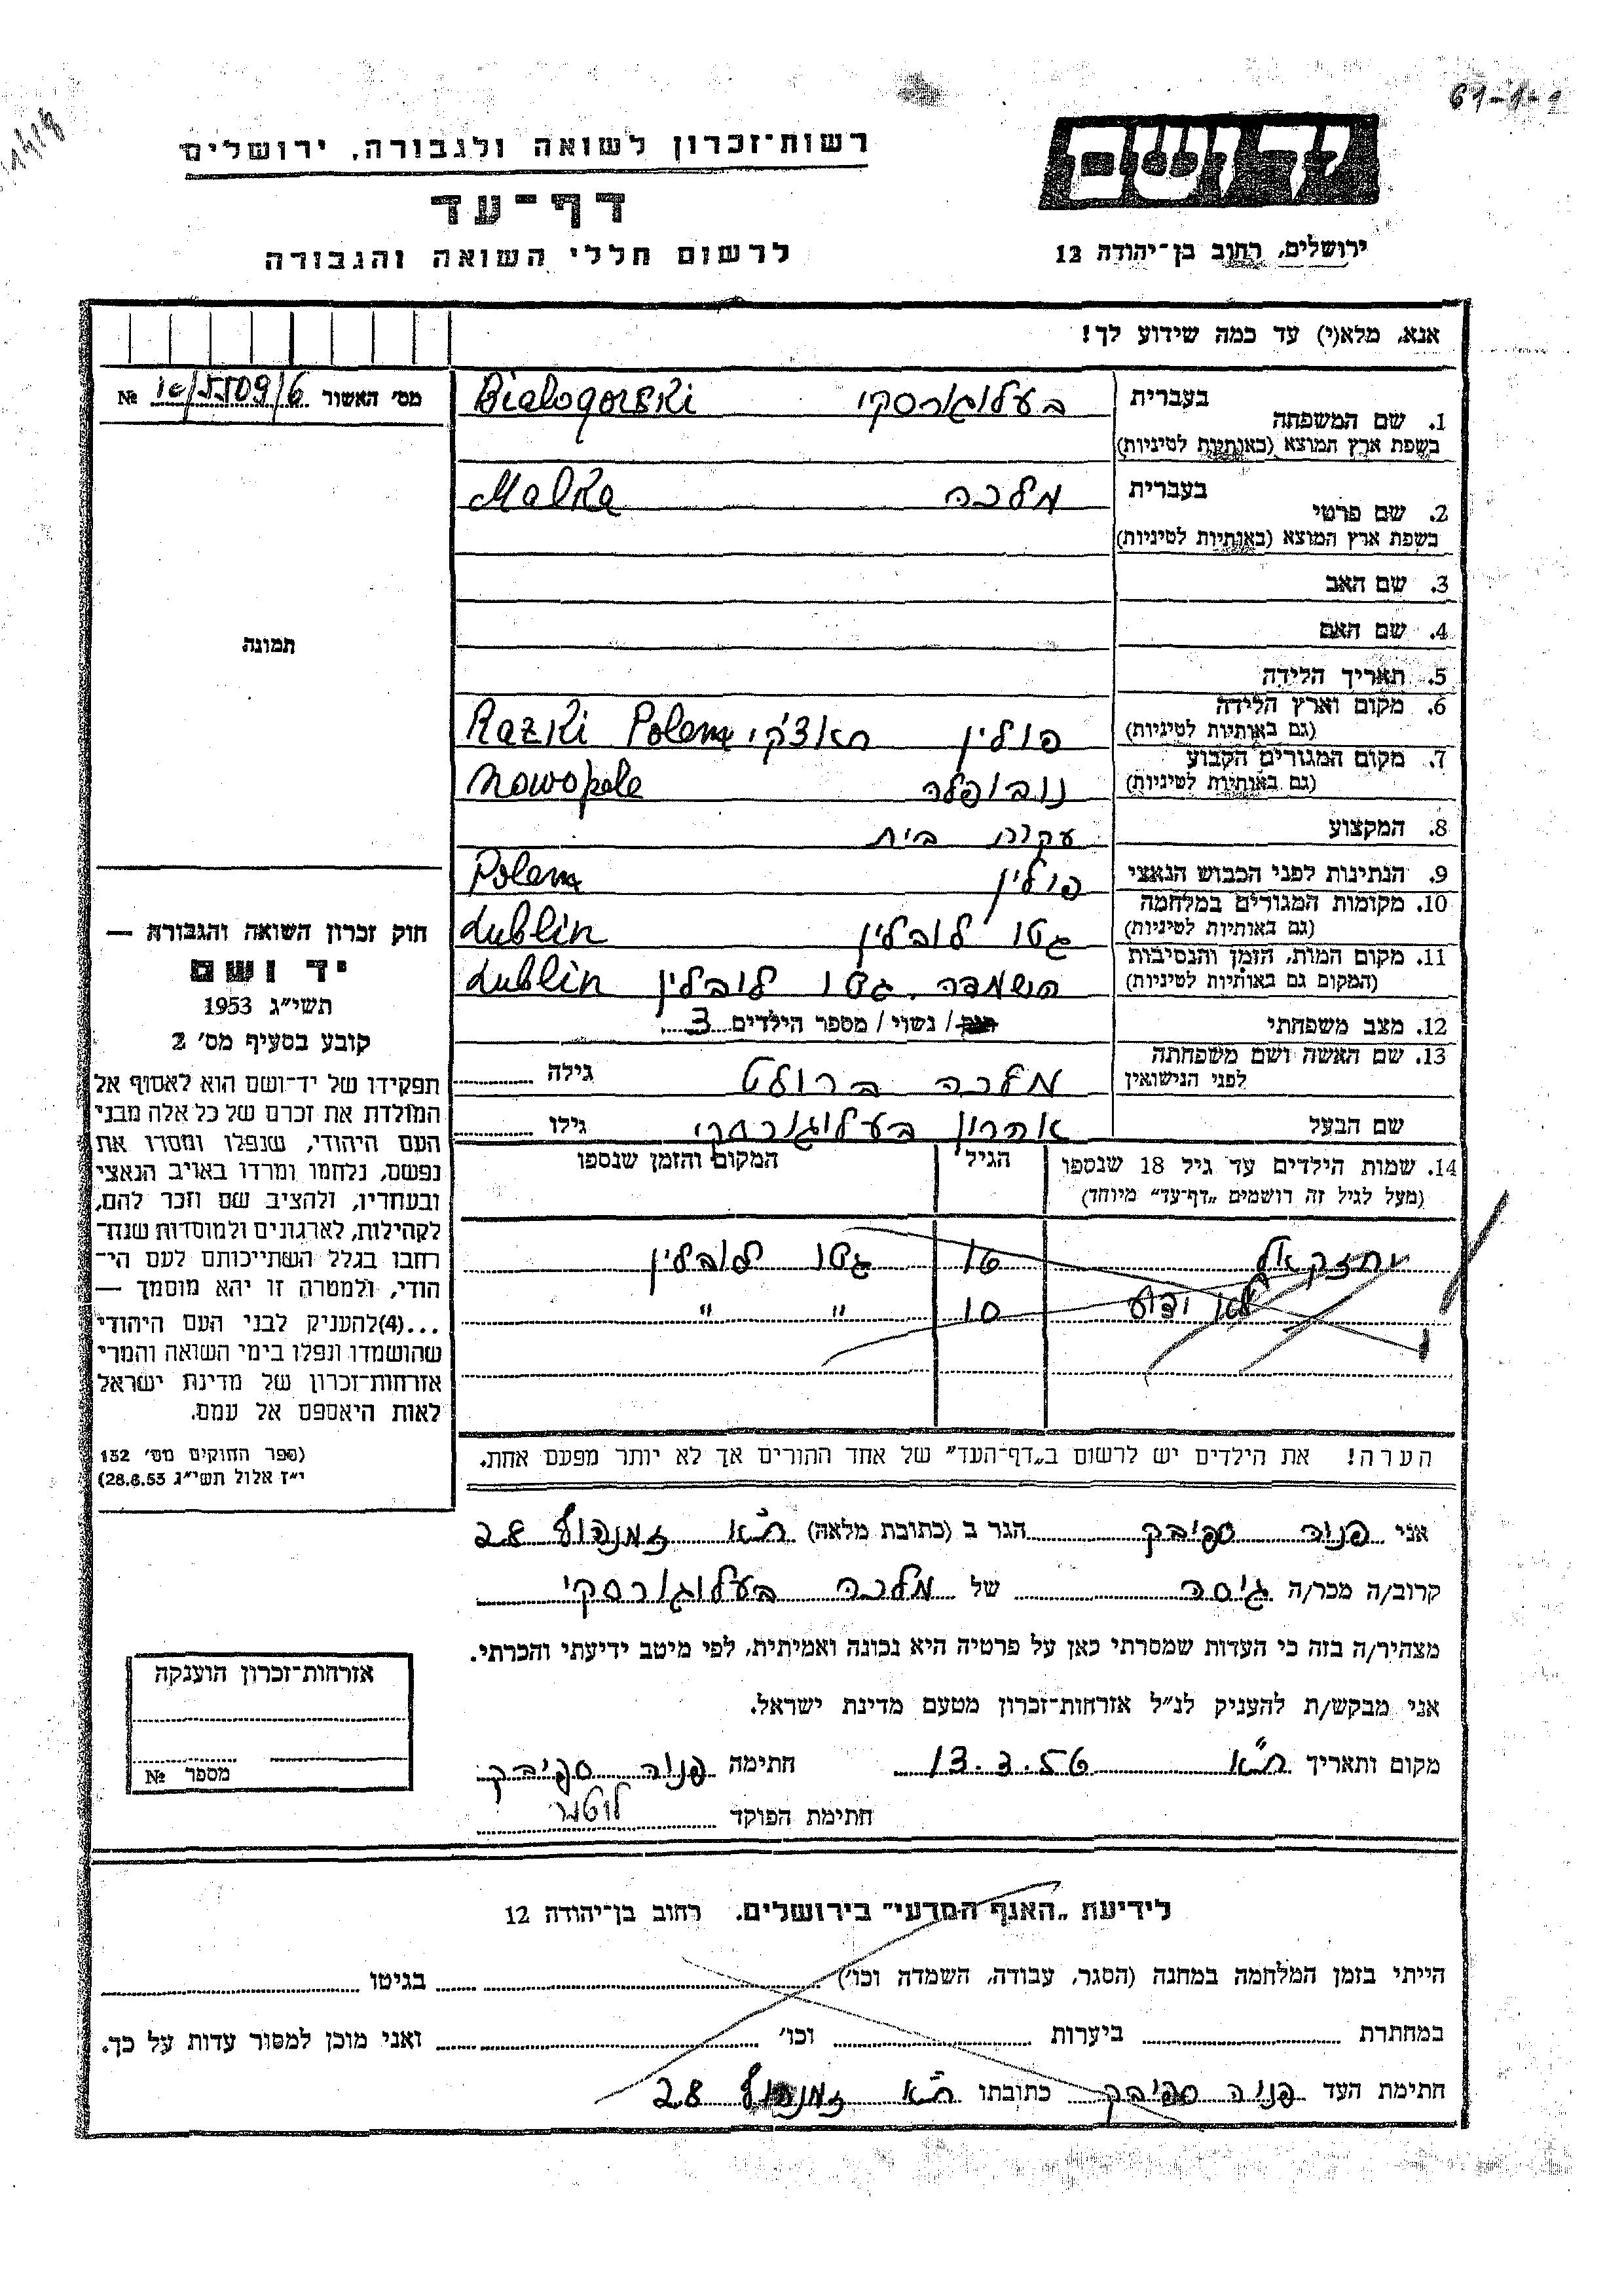 61-1-
יד ושם
רשות־זכרון לשואה ולגבורה, ירושלים
דף־עד
לרשום חללי השואה והגבורה
ירושלים, רחוב בן־יהודה 12
אנא, מלא(י) עד כמה שידוע לך!
מס' האשור № 10/5509/6
1. שם המשפחה בעברית בעלוגורסקי Bialogorski
בשפת ארץ המוצא (באותיות לטיניות)
2. שם פרטי בעברית מלכה Malka
בשפת ארץ המוצא (באותיות לטיניות)
3. שם האב
4. שם האם
תמונה
5. תאריך הלידה
6. מקום וארץ הלידה
(גם באותיות לטיניות) פולין ראצקי Razki Polen
7. מקום המגורים הקבוע
(גם באותיות לטיניות) נובופלה Nowopole
8. המקצוע עקרת בית
9. הנתינות לפני הכבוש הנאצי פולין Polen
10. מקומות המגורים במלחמה
(גם באותיות לטיניות) גטו לובלין Lublin
11. מקום המות, הזמן והנסיבות
(המקום גם באותיות לטיניות) השמדה. גטו לובלין Lublin
12. מצב משפחתי רווק / נשוי / מספר הילדים 3
13. שם האשה ושם משפחתה
לפני הנישואין מלכה ברולט גילה
שם הבעל אהרון בעלוגורסקי גילו
14. שמות הילדים עד גיל 18 שנספו הגיל המקום והזמן שנספו
(מעל לגיל זה רושמים „דף־עד" מיוחד)
יחזקאל 16 גטו לובלין
לא ידוע 10 " "
הערה! את הילדים יש לרשום ב„דף־העד" של אחד ההורים אך לא יותר מפעם אחת.
חוק זכרון השואה והגבורה —
יד ושם
תשי"ג 1953
קובע בסעיף מס' 2
תפקידו של יד־ושם הוא לאסוף אל
המולדת את זכרם של כל אלה מבני
העם היהודי, שנפלו ומסרו את
נפשם, נלחמו ומרדו באויב הנאצי
ובעוזריו, ולהציב שם וזכר להם,
לקהילות, לארגונים ולמוסדות שנח־
רחבו בגלל השתייכותם לעם הי־
הודי, ולמטרה זו יהא מוסמך —
...(4)להעניק לבני העם היהודי
שהושמדו ונפלו בימי השואה והמרי
אזרחות־זכרון של מדינת ישראל
לאות היאספם אל עמם.
(ספר החוקים מס' 132
י"ז אלול תשי"ג 28.8.53)
אני פניה ספיבק הגר ב (כתובת מלאה) ת"א זמנהוף 28
קרוב/ה מכר/ה גיסה של מלכה בעלוגורסקי
מצהיר/ה בזה כי העדות שמסרתי כאן על פרטיה היא נכונה ואמיתית, לפי מיטב ידיעתי והכרתי.
אני מבקש/ת להעניק לנ"ל אזרחות־זכרון מטעם מדינת ישראל.
מקום ותאריך ת"א 13.3.56 חתימה פניה ספיבק
חתימת הפוקד
אזרחות־זכרון הוענקה
מספר №
לידיעת „האגף המדעי" בירושלים. רחוב בן־יהודה 12
הייתי בזמן המלחמה במחנה (הסגר, עבודה, השמדה וכו') בגיטו
במחתרת ביערות וכו' ואני מוכן למסור עדות על כך.
חתימת העד פניה ספיבק כתובתו ת"א זמנהוף 28